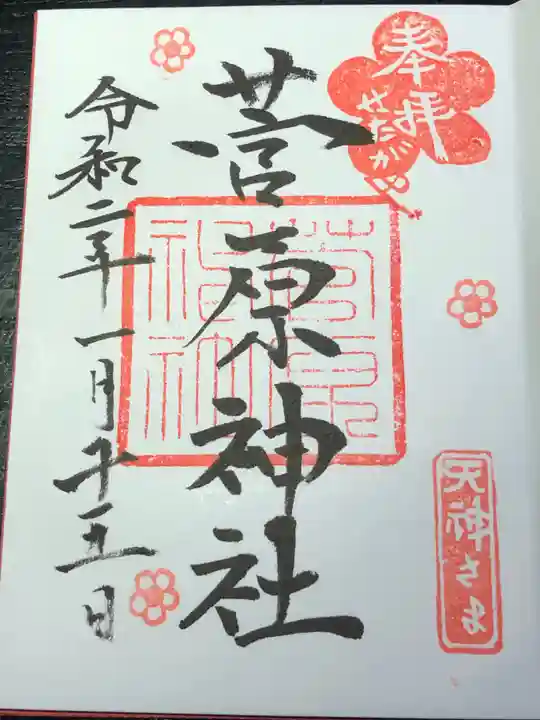 奉拝
せたがや
天神さま
菅原神社
菅原
神社
令和二年一月二十五日